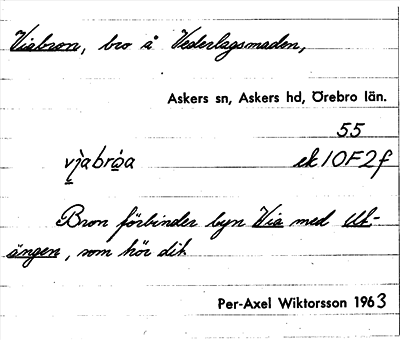 Viabron, bro å Vederlagsmaden,
Askers sn, Askers hd, Örebro län.
55
vi̯àbrǫa ek 10F2f
Bron förbinder byn Via med Ut-
ängen, som hör dit
Per-Axel Wiktorsson 1963